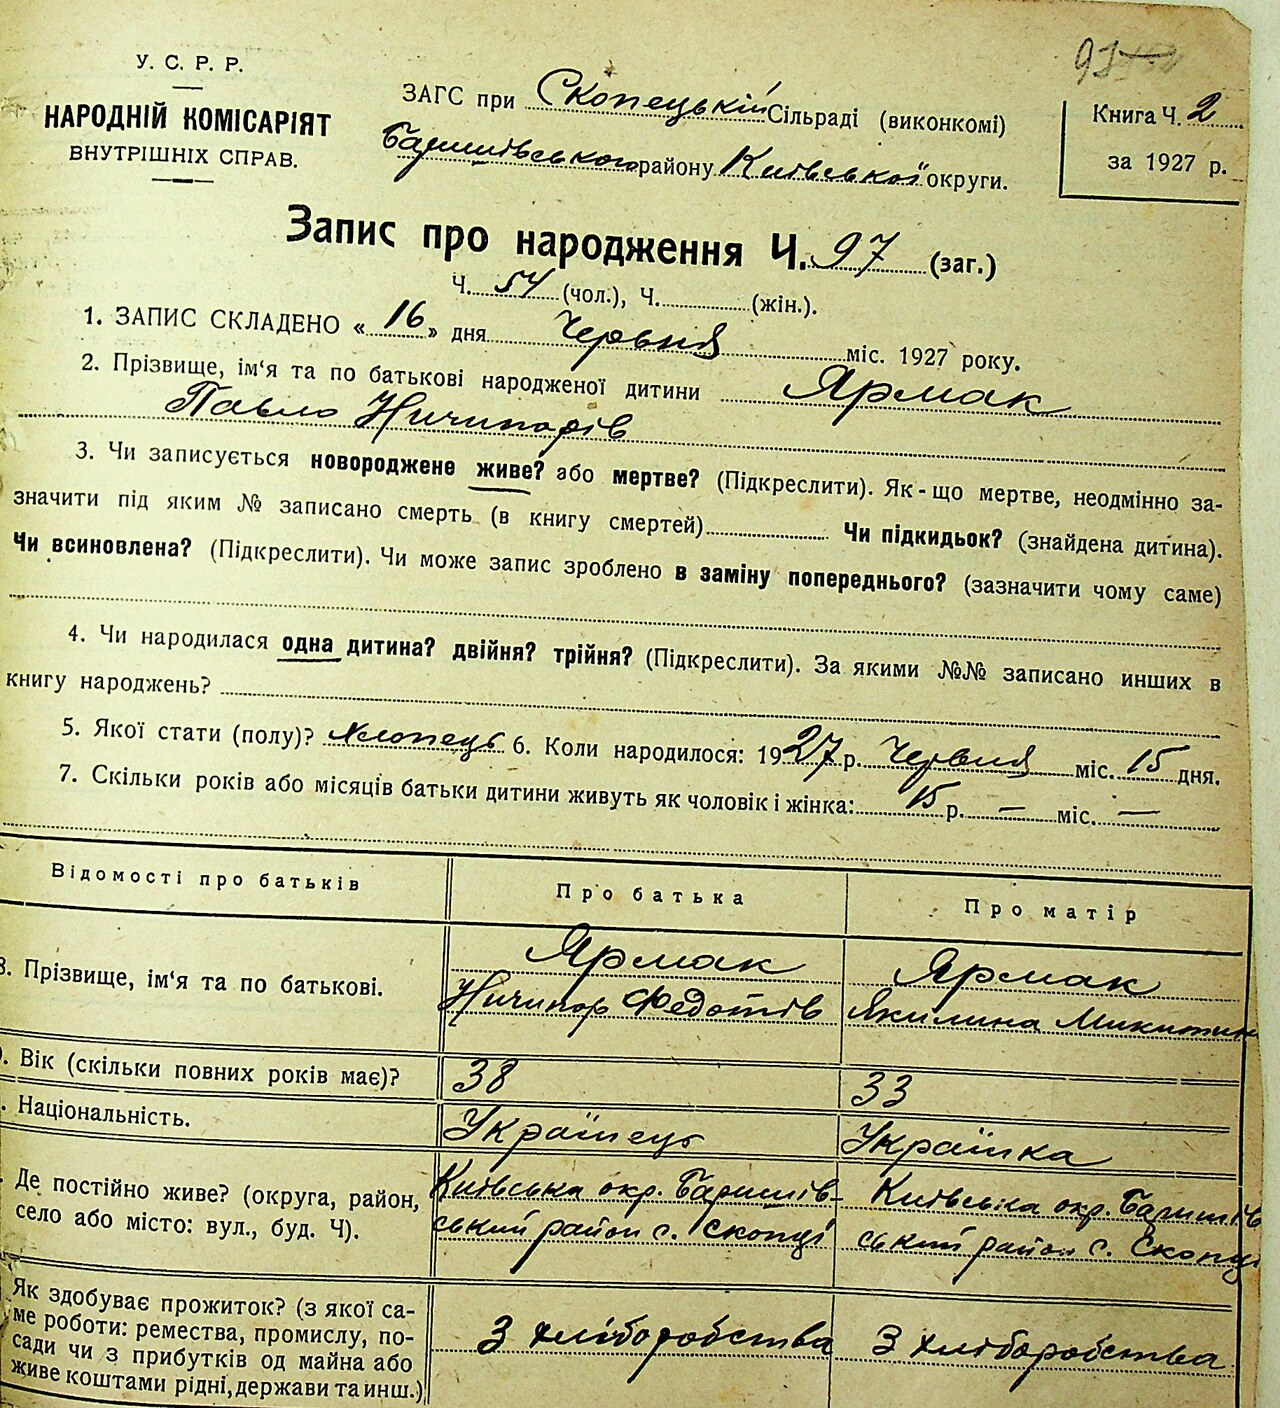 У. С. Р. Р.
НАРОДНІЙ КОМІСАРІЯТ
ВНУТРІШНІХ СПРАВ.
ЗАГС при Скопецькій Сільраді (виконкомі)
Баришівського району Київської округи.
Книга Ч. 2
за 1927 р.
Запис про народження Ч. 97 (заг.)
Ч. 54 (чол.), Ч. (жін.).
1. ЗАПИС СКЛАДЕНО « 16 » дня Червня міс. 1927 року.
2. Прізвище, ім'я та по батькові народженої дитини Ярмак
Павло Ничипорів
3. Чи записується новороджене живе? або мертве? (Підкреслити). Як-що мертве, неодмінно за-
значити під яким № записано смерть (в книгу смертей) Чи підкидьок? (знайдена дитина).
Чи всиновлена? (Підкреслити). Чи може запис зроблено в заміну попереднього? (зазначити чому саме)
4. Чи народилася одна дитина? двійня? трійня? (Підкреслити). За якими №№ записано инших в
книгу народжень?
5. Якої стати (полу)? Хлопець 6. Коли народилося: 1927 р. Червня міс. 15 дня.
7. Скільки років або місяців батьки дитини живуть як чоловік і жінка: 15 р. — міс. —
Відомості про батьків Про батька Про матір
8. Прізвище, ім'я та по батькові. Ярмак Ничипор Федотів Ярмак Якилина Микитин
. Вік (скільки повних років має)? 38 33
. Національність. Українець Українка
Де постійно живе? (округа, район, село або місто: вул., буд. Ч). Київська окр. Баришів-ський район с. Скопці Київська окр. Баришів ський район с. Скопці
Як здобуває прожиток? (з якої са-
ме роботи: ремества, промислу, по-
сади чи з прибутків од майна або
живе коштами рідні, держави та инш.) З хліборобства З хліборобства